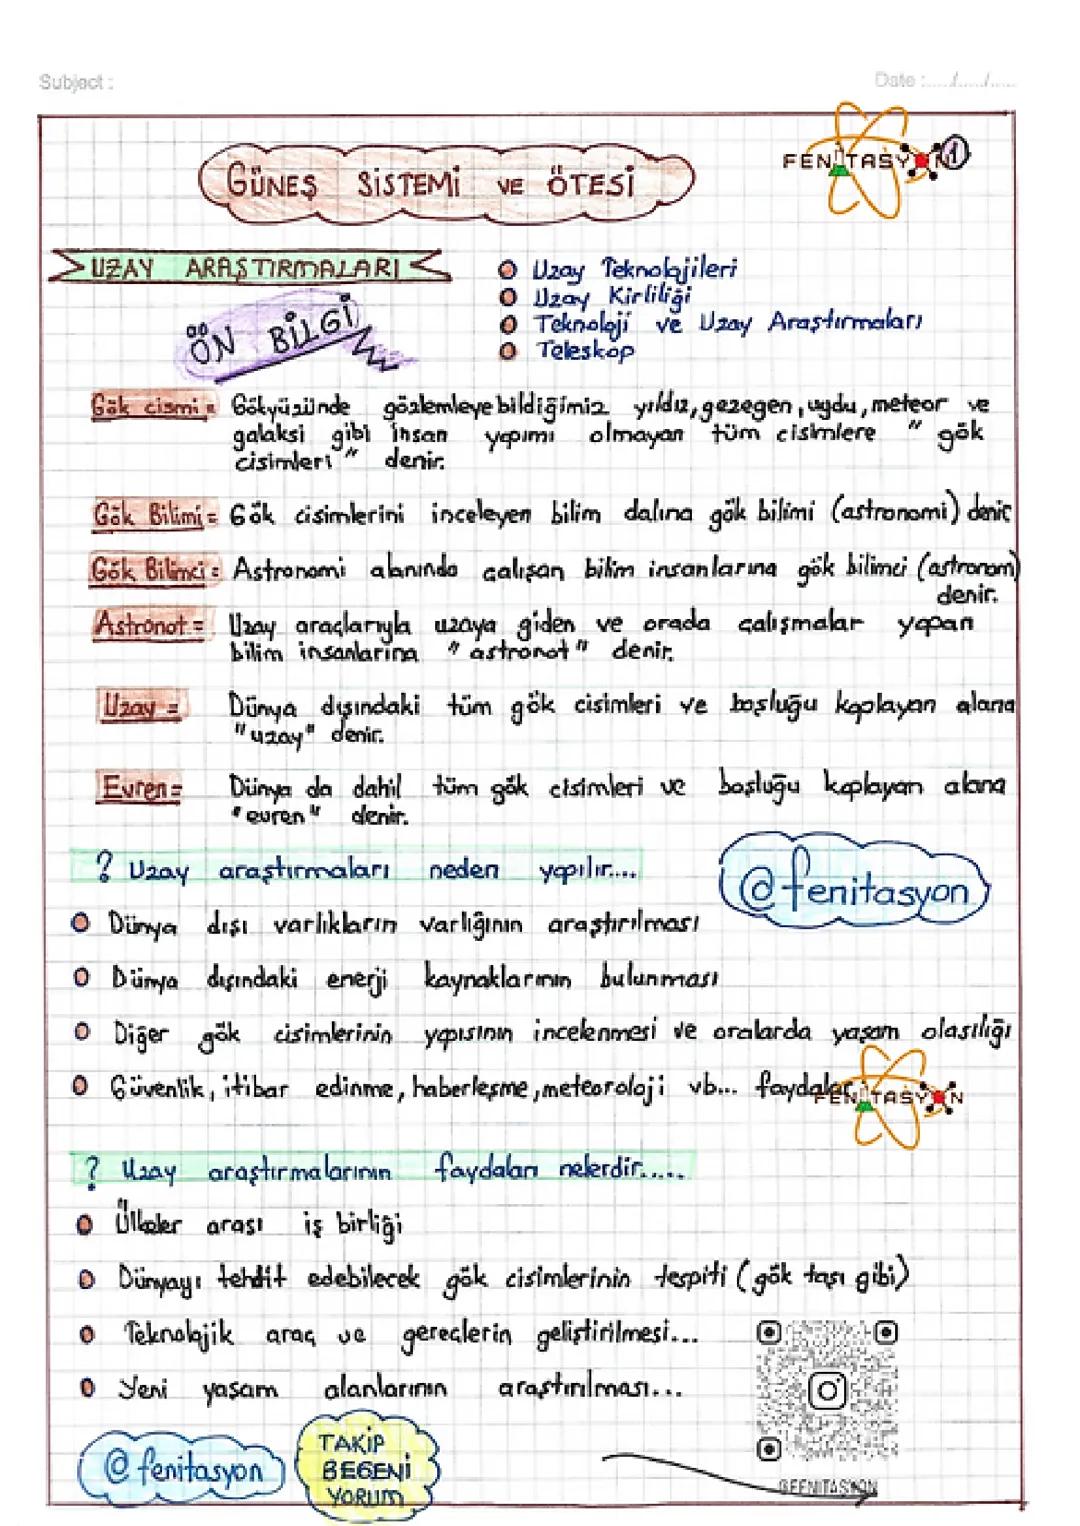 Subject :
Date :...../...../.....
FENİTASYON
1
GÜNEŞ SİSTEMİ VE ÖTESİ
UZAY ARAŞTIRMALARI
Uzay Teknolojileri
Uzay Kirliliği
Teknoloji ve Uzay Araştırmaları
Teleskop
ÖN BİLGİ
Gök cismi = Gökyüzünde gözlemleyebildiğimiz yıldız, gezegen, uydu, meteor ve
galaksi gibi insan yapımı olmayan tüm cisimlere " gök
cisimleri " denir.
Gök Bilimi = Gök cisimlerini inceleyen bilim dalına gök bilimi (astronomi) denir
Gök Bilimci = Astronomi alanında çalışan bilim insanlarına gök bilimci (astronom)
denir.
Astronot = Uzay araçlarıyla uzaya giden ve orada çalışmalar yapan
bilim insanlarına " astronot " denir.
Uzay = Dünya dışındaki tüm gök cisimleri ve boşluğu kaplayan alana
"uzay" denir.
Evren = Dünya da dahil tüm gök cisimleri ve boşluğu kaplayan alana
"evren" denir.
? Uzay araştırmaları neden yapılır....
@fenitasyon
Dünya dışı varlıkların varlığının araştırılması
Dünya dışındaki enerji kaynaklarının bulunması
Diğer gök cisimlerinin yapısının incelenmesi ve oralarda yaşam olasılığı
Güvenlik, itibar edinme, haberleşme, meteoroloji vb... faydalar
FENİTASYON
? Uzay araştırmalarının faydaları nelerdir.....
Ülkeler arası iş birliği
Dünyayı tehdit edebilecek gök cisimlerinin tespiti (gök taşı gibi)
Teknolojik araç ve gereçlerin geliştirilmesi...
Yeni yaşam alanlarının araştırılması...
@fenitasyon
TAKİP
BEĞENİ
YORUM
@FENITASYON